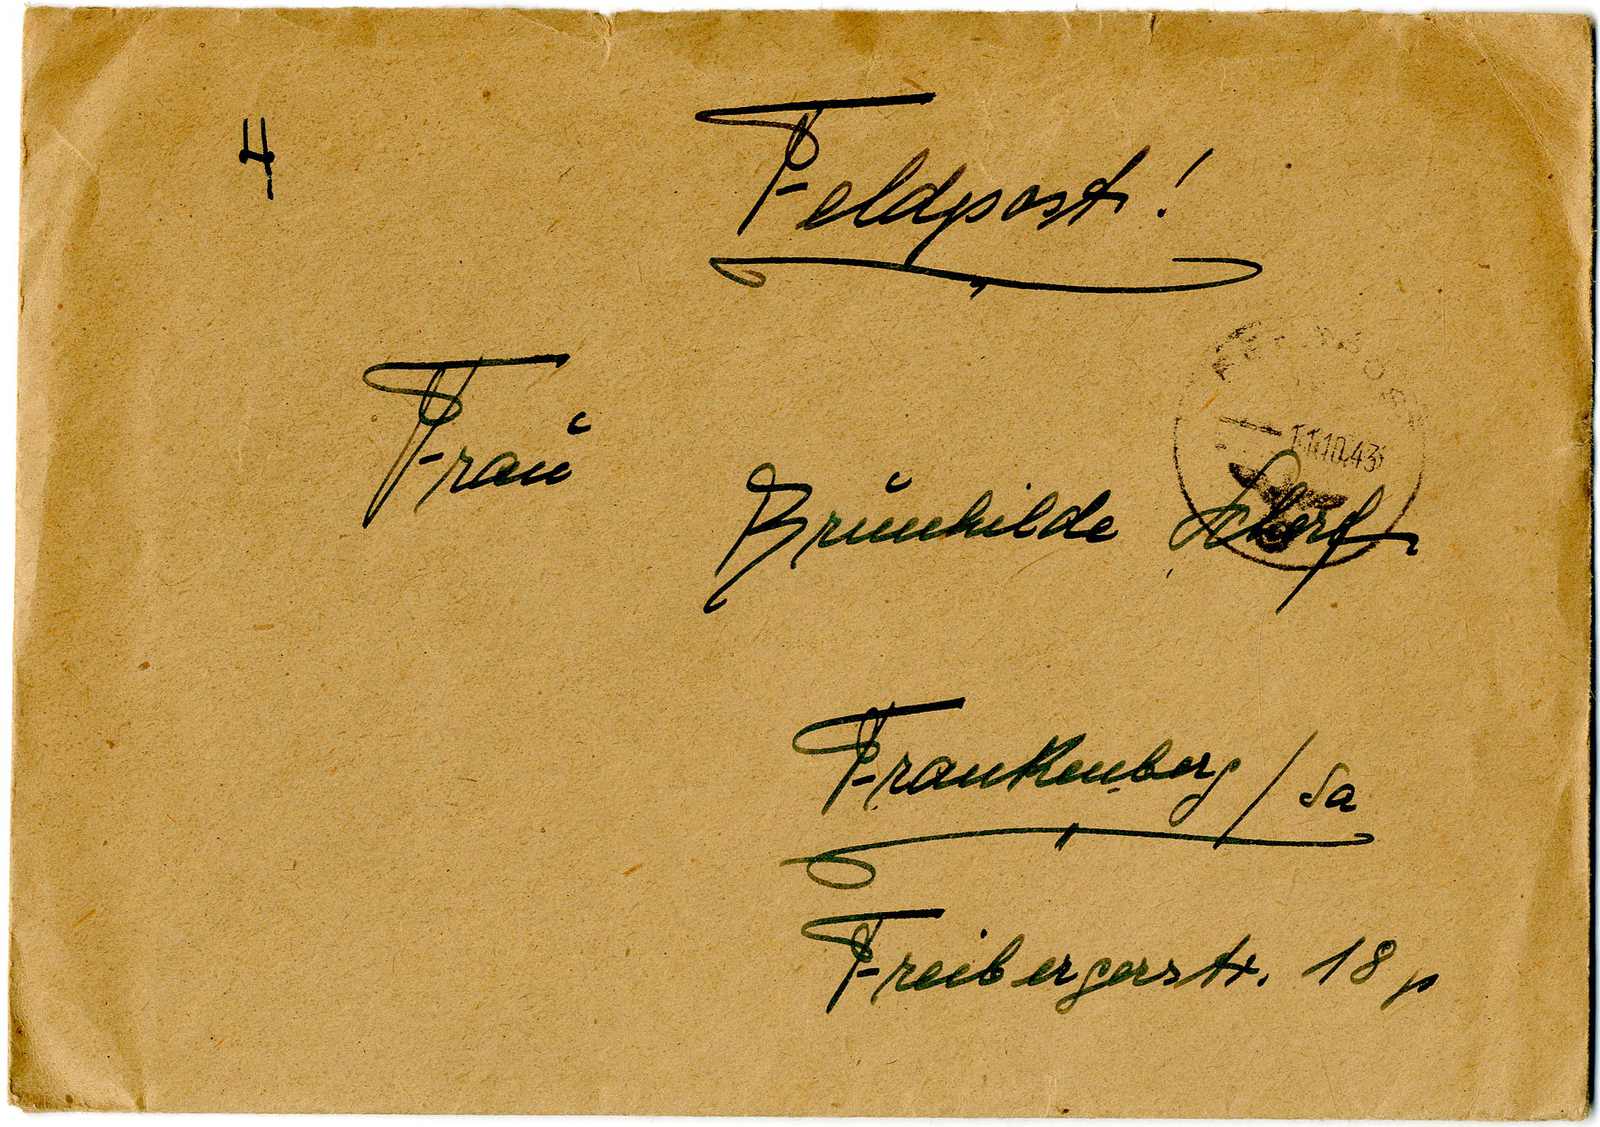 4
Feldpost!
11.10.43
Frau
Brünhilde Scherf
Frankenberg / Sa
Freibergerstr. 18 p